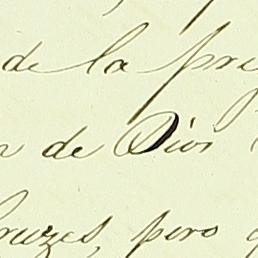 de la pri
n de Dios
cruzes, pero q